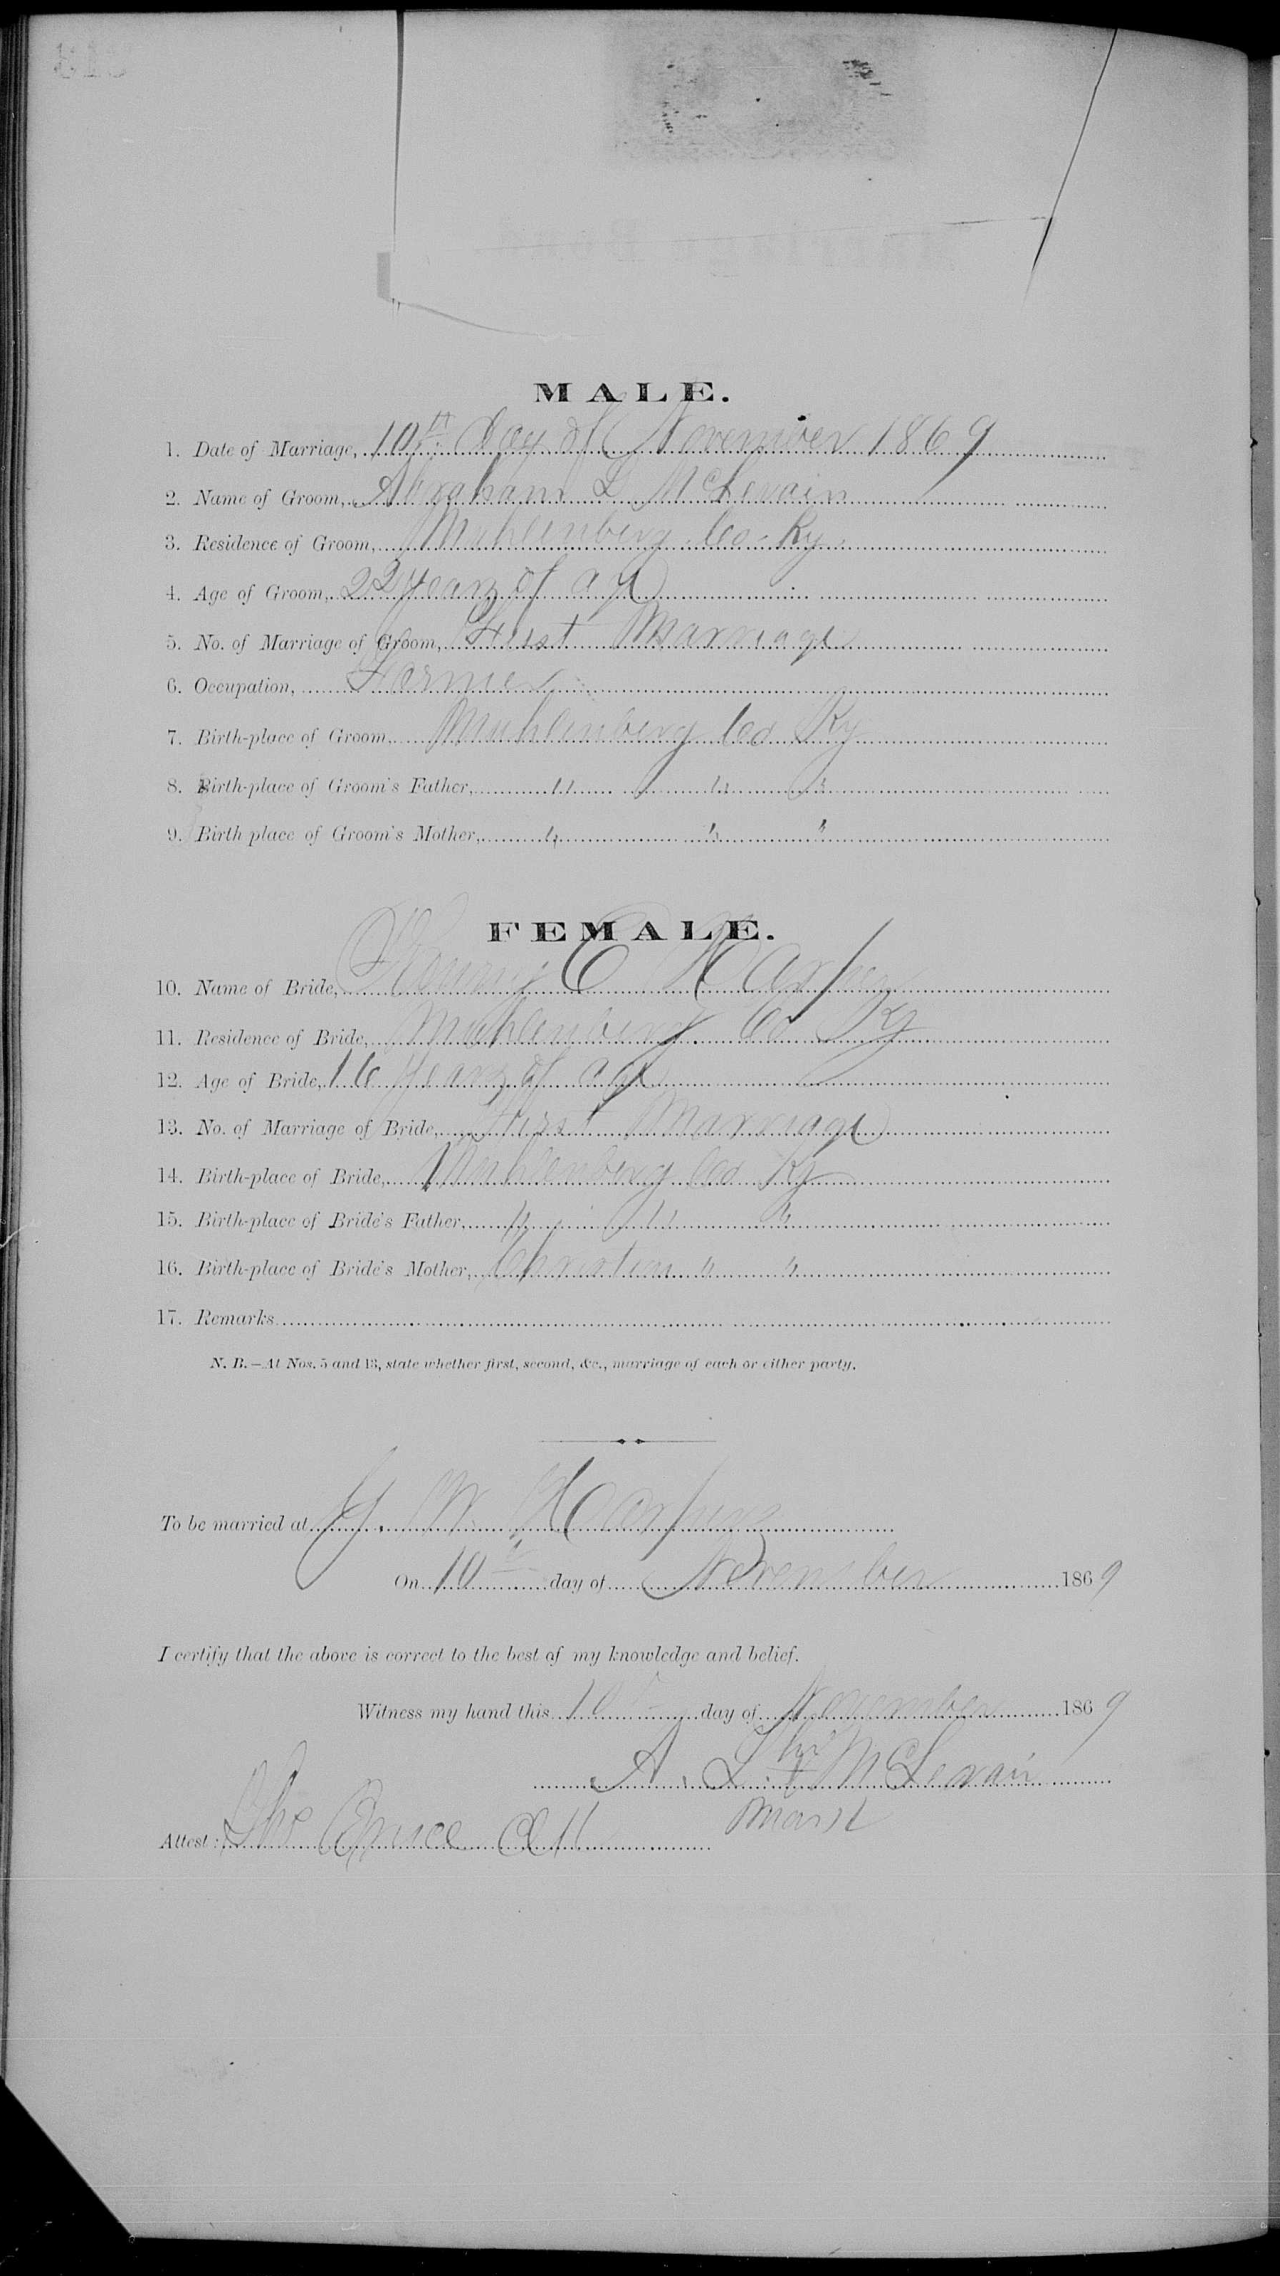 MALE.
1. Date of Marriage, 10th day of November 1869
2. Name of Groom, Abraham L McLevain
3. Residence of Groom, Muhlenberg Co. Ky.
4. Age of Groom, 22 years of age
5. No. of Marriage of Groom, First Marriage
6. Occupation, Farmer
7. Birth-place of Groom Muhlenberg Co Ky
8. Birth-place of Groom's Father, " " "
9. Birth place of Groom's Mother, " " "
FEMALE.
10. Name of Bride, E Harper
11. Residence of Bride, Muhlenberg Co Ky
12. Age of Bride, 16 years of age
13. No. of Marriage of Bride, First Marriage
14. Birth-place of Bride, Muhlenberg Co Ky
15. Birth-place of Bride's Father, " " "
16. Birth-place of Bride's Mother, Christian " "
17. Remarks
N. B.—At Nos. 5 and 13, state whether first, second, &c., marriage of each or either party.
To be married at Y. W. Harpers
On 10th day of November 1869
I certify that the above is correct to the best of my knowledge and belief.
Witness my hand this 10th day of November 1869
his
A. L. x McLevain
mark
Attest: Bruce